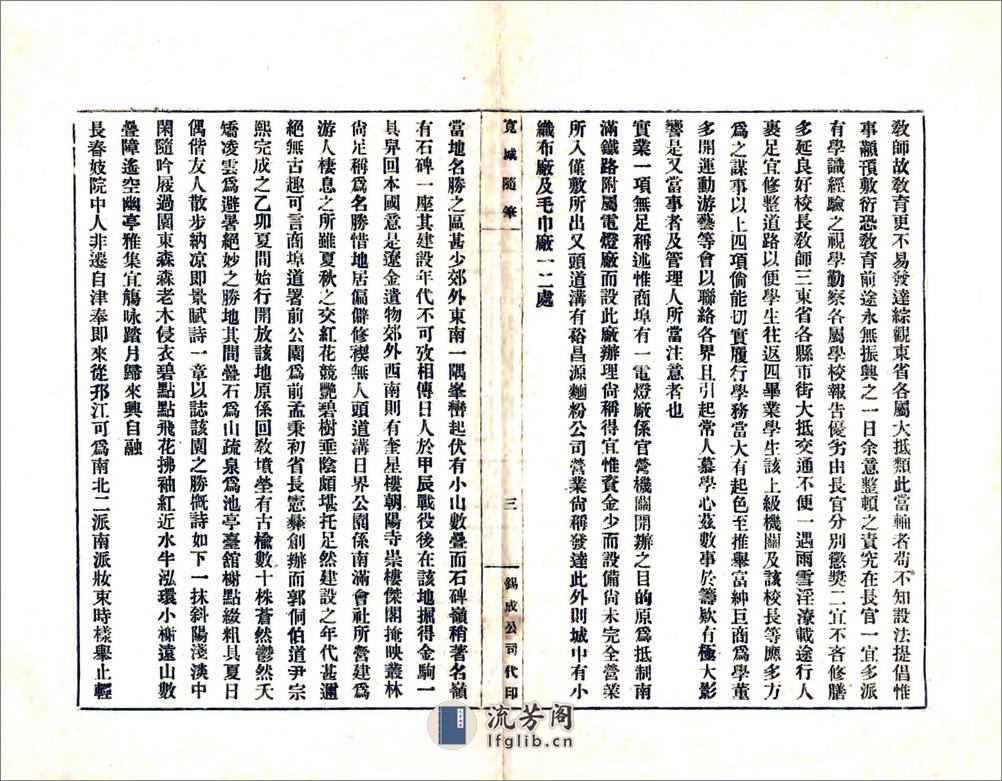 敎師故敎育更不易發達綜觀東省各屬大抵類此當軸者苟不知設法提倡惟
事顢頇敷衍恐敎育前途永無振興之一日余意整頓之責究在長官一宜多派
有學識經驗之視學勤察各屬學校報告優劣由長官分別懲獎二宜不吝修膳
多延良好校長敎師三東省各縣市街大抵交通不便一遇雨雪淫潦載途行人
裹足宜修整道路以便學生往返四畢業學生該上級機關及該校長等應多方
爲之謀事以上四項倘能切實履行學務當大有起色至推舉富紳巨商爲學董
多開運動游藝等會以聯絡各界且引起常人慕學心茲數事於籌欵有極大影
響是又當事者及管理人所當注意者也
實業一項無足稱述惟商埠有一電燈廠係官營機關開辦之目的原爲抵制南
滿鐵路附屬電燈廠而設此廠辦理尙稱得宜惟資金少而設備尙未完全營業
所入僅敷所出又頭道溝有裕昌源麵粉公司營業尙稱發達此外則城中有小
織布廠及毛巾廠一二處
寬城隨筆
三
錫成公司代印
當地名勝之區甚少郊外東南一隅峯巒起伏有小山數疊而石碑嶺稍著名嶺
有石碑一座其建設年代不可攷相傳日人於甲辰戰役後在該地掘得金駒一
具舁回本國意是遼金遺物郊外西南則有奎星樓朝陽寺崇樓傑閣掩映叢林
尙足稱爲名勝惜地居偏僻修禊無人頭道溝日界公園係南滿會社所營建爲
游人棲息之所雖夏秋之交紅花競艷碧樹垂陰頗堪托足然建設之年代甚邇
絕無古趣可言商埠道署前公園爲前孟秉初省長憲彝創辦而郭侗伯道尹宗
熙完成之乙卯夏間始行開放該地原係回敎墳塋有古楡數十株蒼然鬱然夭
矯凌雲爲避暑絕妙之勝地其間疊石爲山疏泉爲池亭臺館榭點綴粗具夏日
偶偕友人散步納凉卽景賦詩一章以誌該園之勝槪詩如下一抹斜陽淺淡中
閑隨吟屐過園東森森老木侵衣碧點點飛花拂袖紅近水半泓環小榭遠山數
疊障遙空幽亭雅集宜觴咏踏月歸來興自融
長春妓院中人非遷自津奉卽來從邗江可爲南北二派南派妝束時樣舉止輕
流芳阁
lfglib.cn